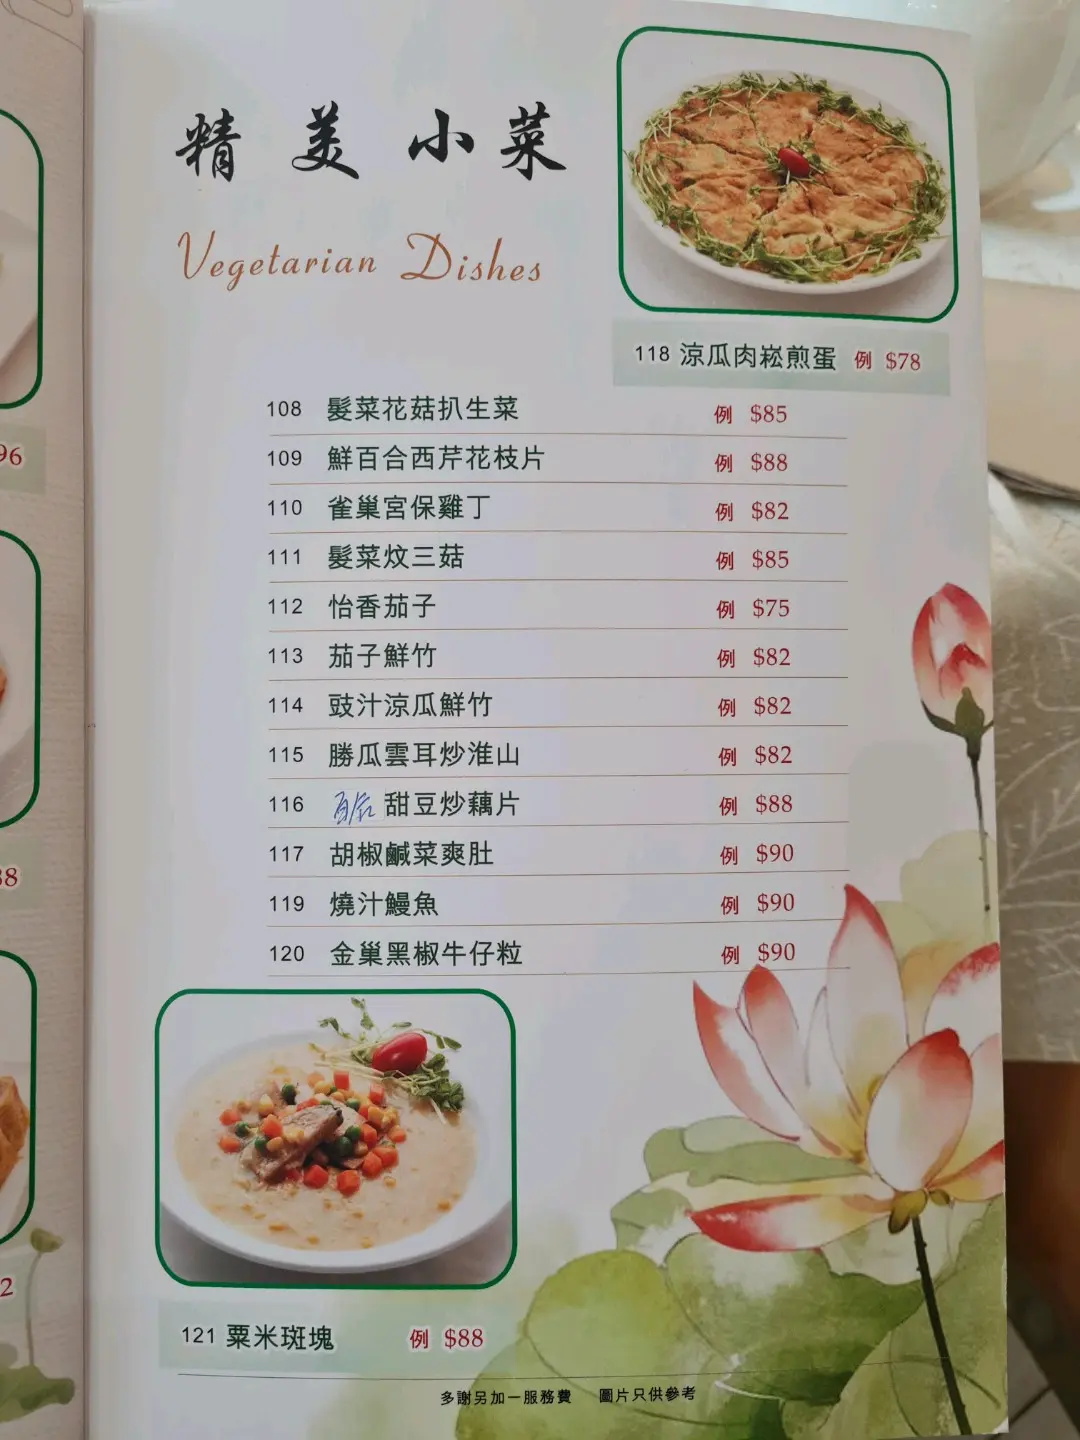 精美小菜
Vegetarian Dishes
118 涼瓜肉崧煎蛋 例 $78
108 髮菜花菇扒生菜 例 $85
109 鮮百合西芹花枝片 例 $88
110 雀巢宮保雞丁 例 $82
111 髮菜炆三菇 例 $85
112 怡香茄子 例 $75
113 茄子鮮竹 例 $82
114 豉汁涼瓜鮮竹 例 $82
115 勝瓜雲耳炒淮山 例 $82
116 甜豆炒藕片 例 $88
117 胡椒鹹菜爽肚 例 $90
119 燒汁鰻魚 例 $90
120 金巢黑椒牛仔粒 例 $90
121 粟米斑塊 例 $88
多謝另加一服務費 圖片只供參考
96
38
2